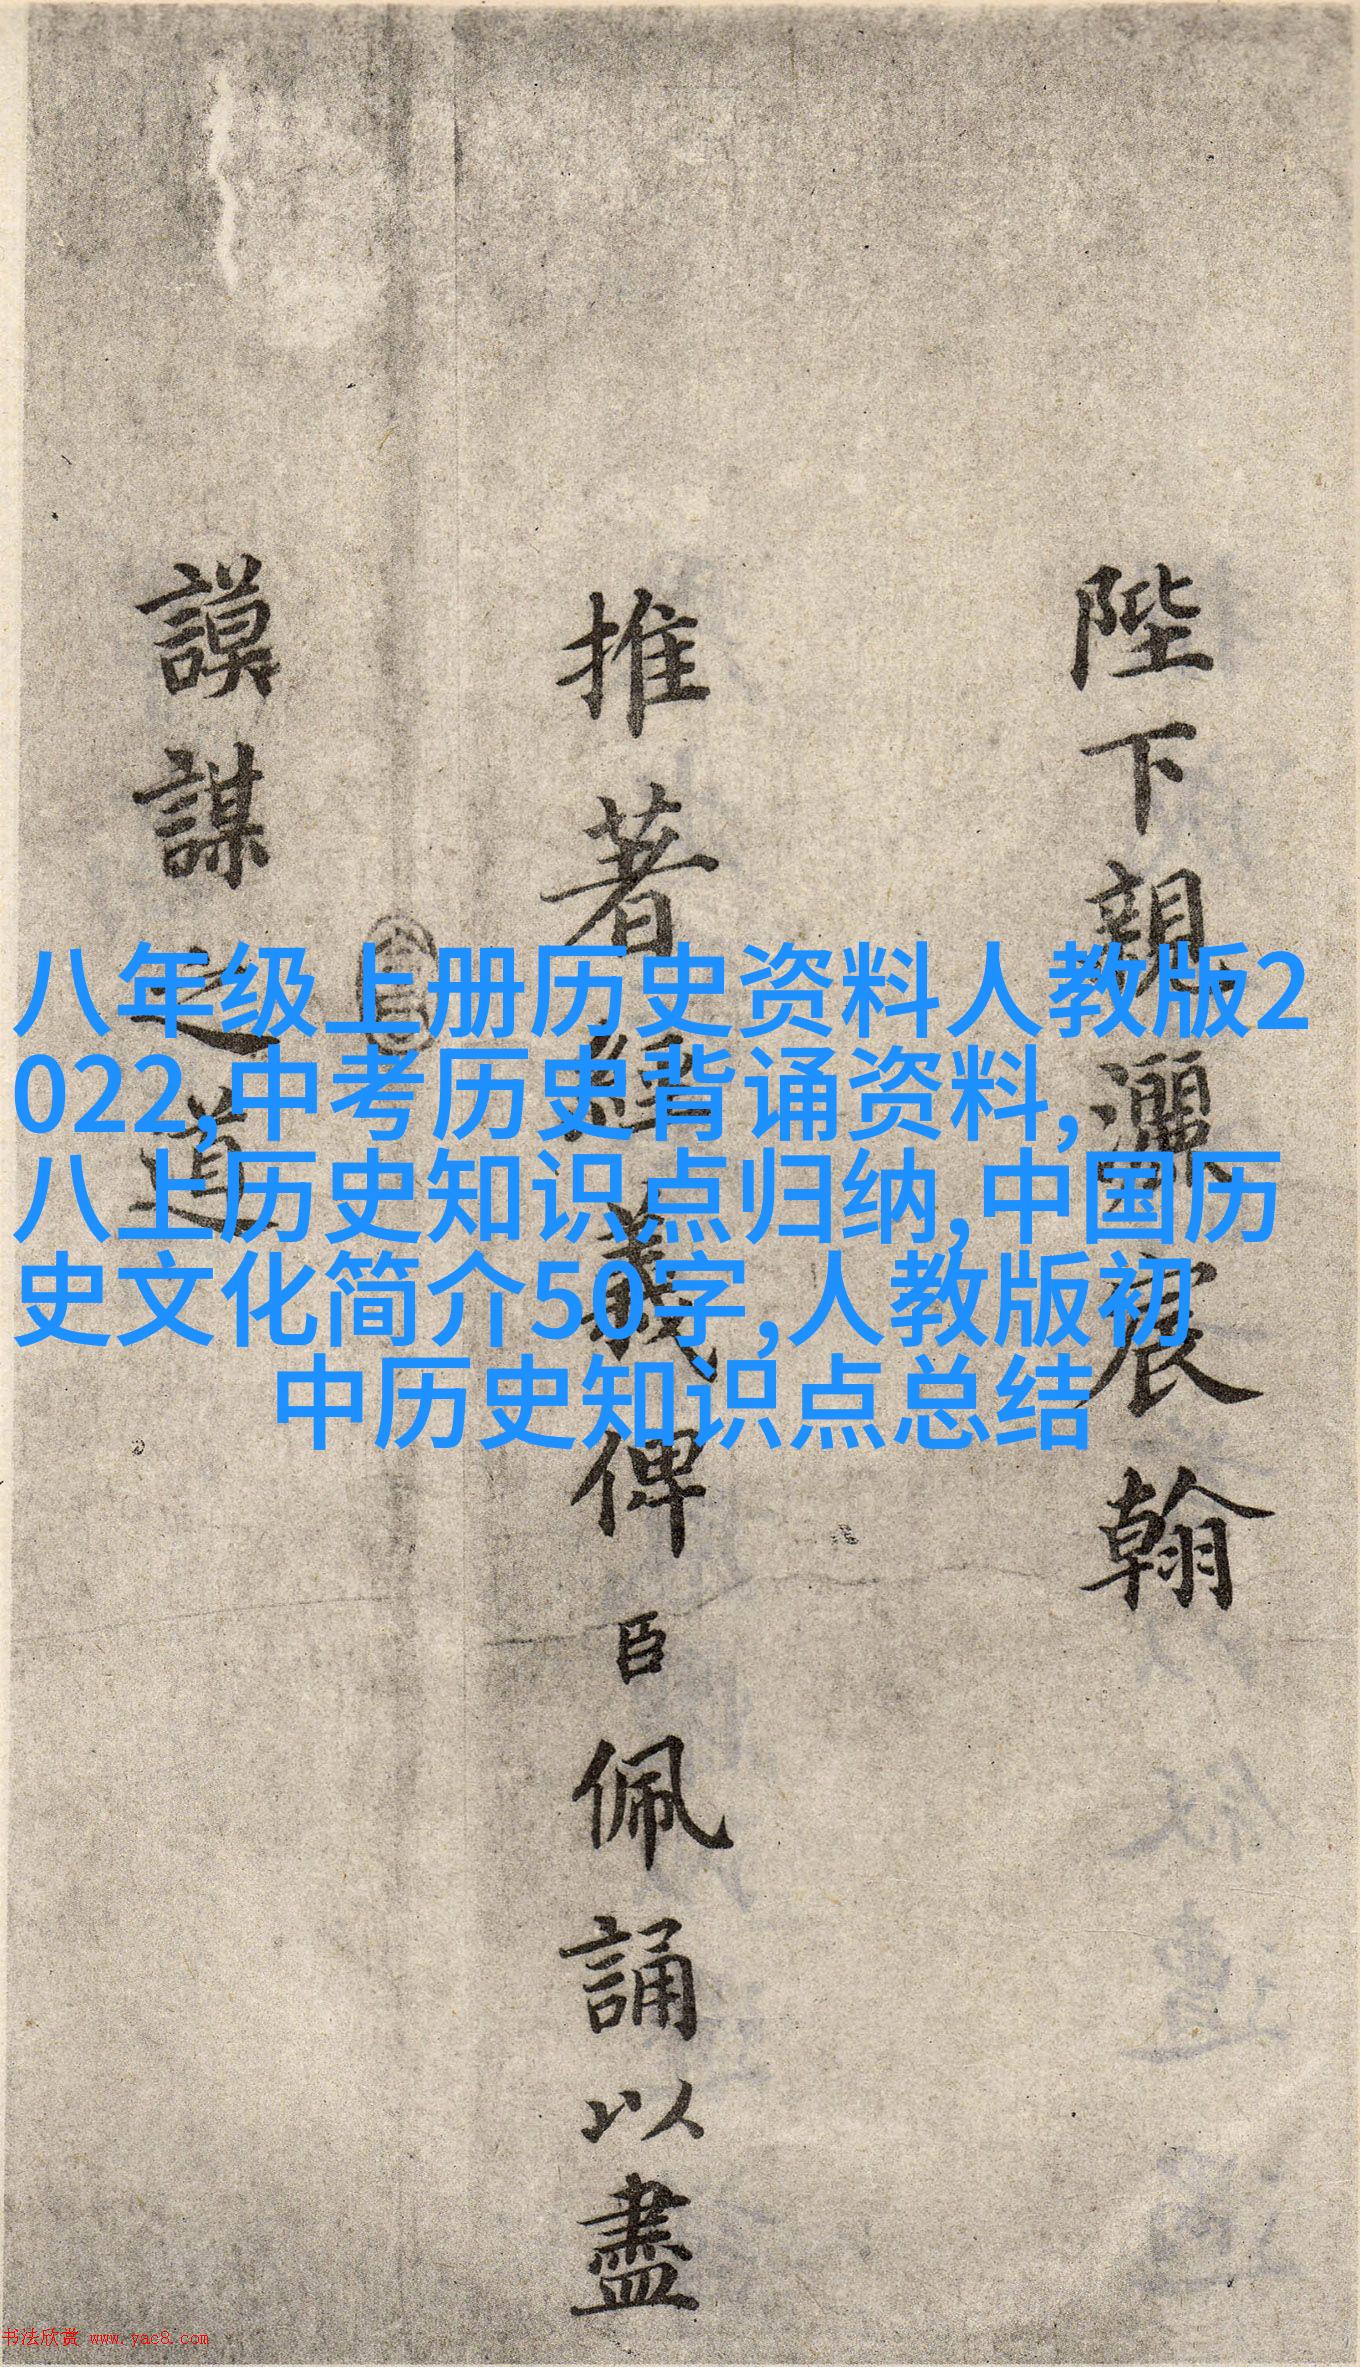 陛下親灑宸翰
推著經義俾臣佩誦以盡
謨謀之道
八年级上册历史资料人教版2
022,中考历史背诵资料,
八上历史知识点归纳,中国历
史文化简介50字,人教版初
中历史知识点总结
书法欣赏 www.yac8.com